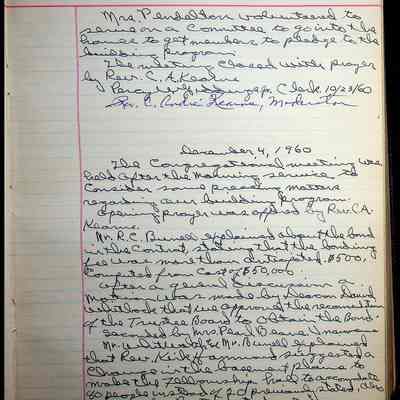 Mrs. Pendelton volunteered to
serve on a Committee to go into the
homes to get members to pledge to the
building program.
The meeting closed with prayer
by Rev. C. A. Kearne
Percy Jr. Clerk 10/23/60
Rev. C. André Kearne, Moderator
December 4, 1960
The Congregational meeting was
held after the morning service to
Consider some pressing matters
regarding our building program.
Opening prayer was offered by Rev. C. A.
Kearne.
Mr. R. C. Burrell explained about the bond
in the Contract, stating that the bonding
fee was more than anticipated. $500,
Computed from Cost of $50,000.
after a general discussion a
Motion was made by Deacon David
Whitlock that we approve the
of the Trustee Board to obtain the Bond.
Second by Mrs Pearl Deane Unanimous
Mr. Whitlock Mr. Burrell explained
that Rev. Kirk Hammond suggested a
Change in the basement plans to
make the Fellowship Hall to accomodate
80 people instead of 20 previously stated, also